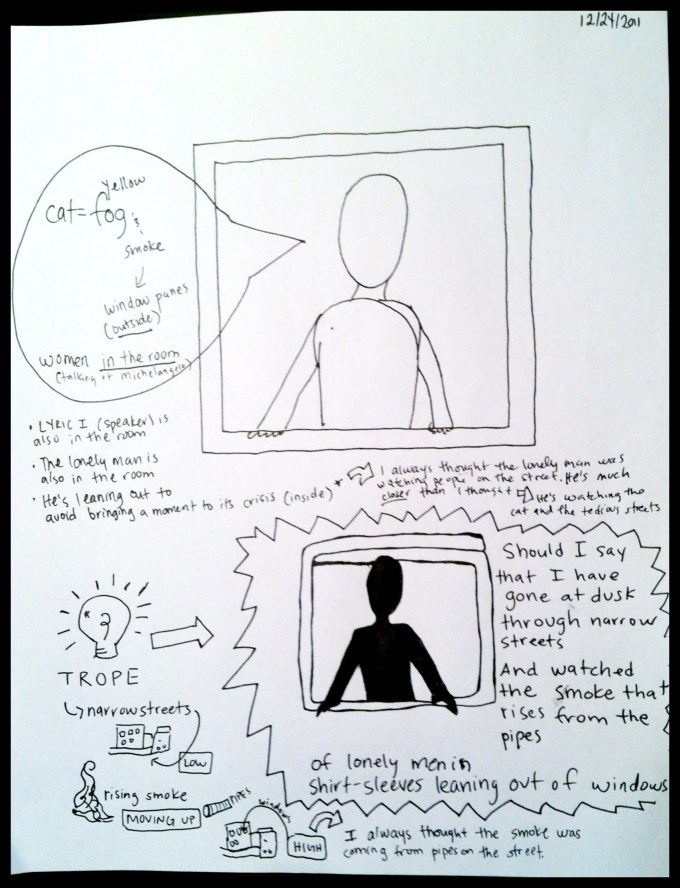 12/24/2011
yellow
cat = fog's
smoke
window panes
(outside)
women in the room
(talking of michelangelo)
• LYRIC I (speaker) is
also in the room
• The lonely man is
also in the room
• He's leaning out to
avoid bringing a moment to its crisis (inside) *
I always thought the lonely man was
watching people on the street. He's much
closer than I thought
He's watching the
cat and the tedious streets
TROPE
narrow streets
LOW
rising smoke
MOVING UP
PIPES
windows
HIGH
Should I say
that I have
gone at dusk
through narrow
streets
And watched
the smoke that
rises from the
pipes
of lonely men in
shirt-sleeves leaning out of windows
I always thought the smoke was
coming from pipes on the street.